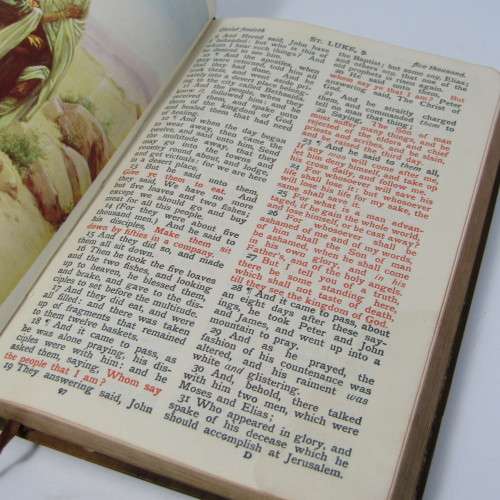 Christ feedeth
ST. LUKE, 9.
five thousand.
9 And Herod said, John have
I beheaded: but who is this, of
whom I hear such things? And
he desired to see him.
10 ¶ And the apostles, when
they were returned, told him all
that they had done. And he
took them, and went aside pri-
vately into a desert place belong-
ing to the city called Bethsaida.
11 And the people, when they
knew it, followed him: and he
received them, and spake unto
them of the kingdom of God,
and healed them that had need
of healing.
12 ¶ And when the day began
to wear away, then came the
twelve, and said unto him, Send
the multitude away, that they
may go into the towns and
country round about, and lodge,
and get victuals: for we are here
in a desert place.
13 But he said unto them,
Give ye them to eat. And
they said, We have no more
but five loaves and two fishes;
except we should go and buy
meat for all this people.
14 (For they were about five
thousand men.) And he said to
his disciples, Make them sit
down by fifties in a company.
15 And they did so, and made
them all sit down.
16 Then he took the five loaves
and the two fishes, and looking
up to heaven, he blessed them,
and brake, and gave to the dis-
ciples to set before the multitude.
17 And they did eat, and were
all filled: and there was taken
up of fragments that remained
to them twelve baskets.
18 ¶ And it came to pass, as
he was alone praying, his dis-
ciples were with him: and he
asked them, saying, Whom say
the people that I am?
19 They answering said, John
97
the Baptist; but some say, Elias;
and others say, that one of the
old prophets is risen again.
20 He said unto them, But
whom say ye that I am? Peter
answering said, The Christ of
God.
21 And he straitly charged
them, and commanded them to
tell no man that thing;
22 Saying, The Son of man
must suffer many things, and be
rejected of the elders and chief
priests and scribes, and be slain,
and be raised the third day.
23 ¶ And he said to them all,
If any man will come after me,
let him deny himself, and take up
his cross daily, and follow me.
24 For whosoever will save his
life shall lose it: but whosoever
will lose his life for my sake, the
same shall save it.
25 For what is a man advan-
taged, if he gain the whole world,
and lose himself, or be cast away?
26 For whosoever shall be
ashamed of me and of my words,
of him shall the Son of man
be ashamed, when he shall come
in his own glory, and in his
Father's, and of the holy angels.
27 But I tell you of a truth,
there be some standing here,
which shall not taste of death,
till they see the kingdom of God.
28 ¶ And it came to pass about
an eight days after these say-
ings, he took Peter and John
and James, and went up into a
mountain to pray.
29 And as he prayed, the
fashion of his countenance was
altered, and his raiment was
white and glistering.
30 And, behold, there talked
with him two men, which were
Moses and Elias:
31 Who appeared in glory, and
spake of his decease which he
should accomplish at Jerusalem.
D